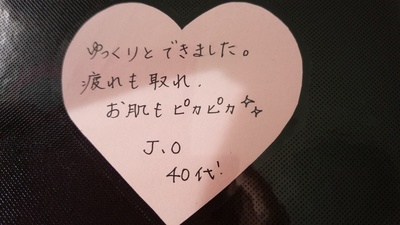 ゆっくりとできました。
疲れも取れ、
お肌もピカピカ✨
J、O
40代!